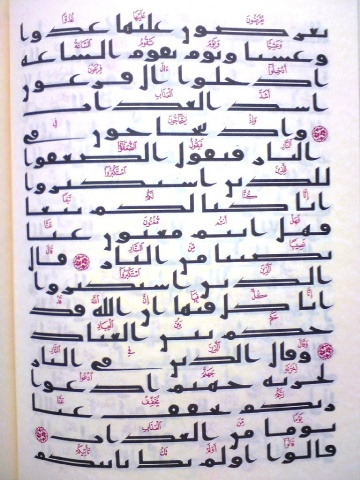 يعرضون عليها غدوا
وعشيا ويوم تقوم الساعه
ادخلوا ال فرعون
اشد العذاب
واذ يتحاجون في
النار فيقول الضعفوا
للذين استكبروا
انا كنا لكم تبعا
فهل انتم مغنون عنا
نصيبا من النار قال
الذين استكبروا
انا كل فيها ان الله قد
حكم بين العباد
وقال الذين في النار
لخزنه جهنم ادعوا
ربكم يخفف عنا
يوما من العذاب
قالوا اولم تك تاتيكم